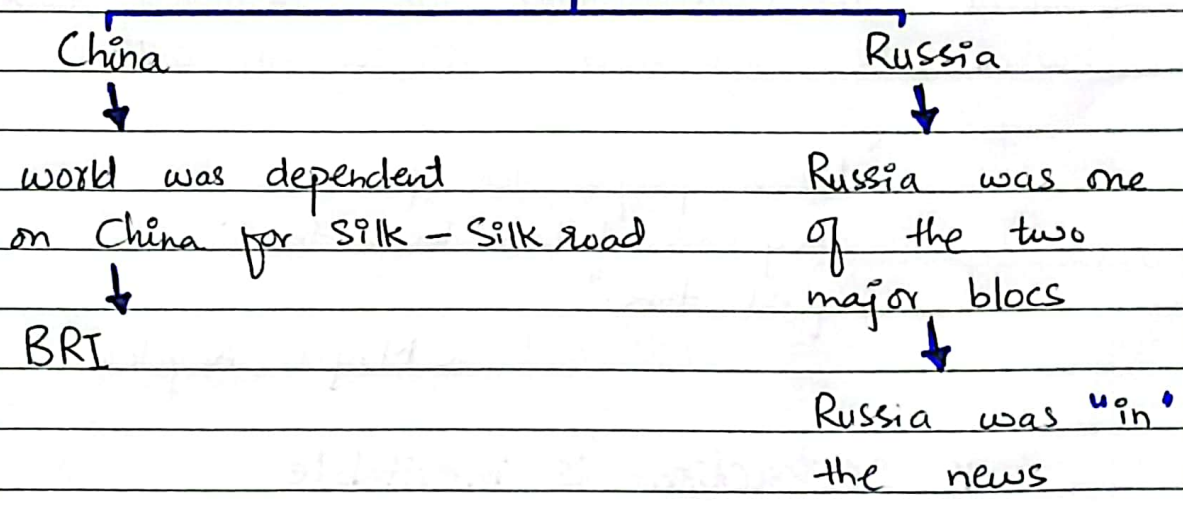 China
world was dependent
on China for Silk - Silk road
BRI
Russia
Russia was one
of the two
major blocs
Russia was "in"
the news